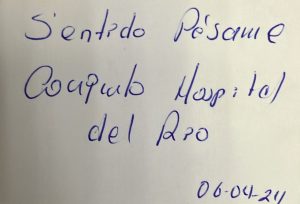 Sentido Pésame
Hospital
del Rio
06-04-24